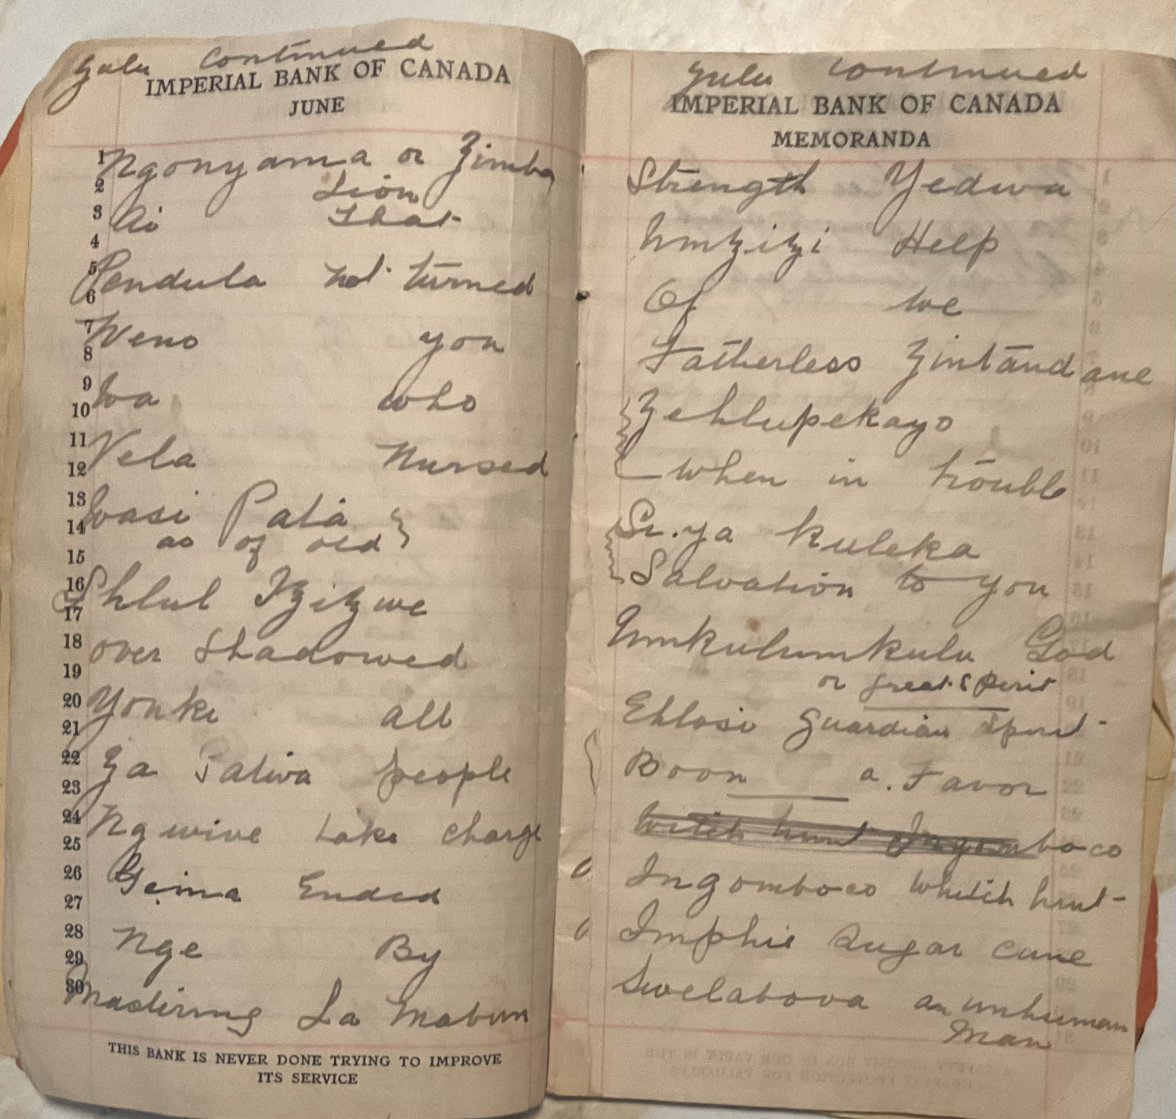 Zulu continued
IMPERIAL BANK OF CANADA
JUNE
1 Ngonyama or Zimba
2 Lion
3 Ai that
4
5 Pendula not turned
6
7 Weno you
8
9
10 Wa who
11
12 Vela Nursed
13
14 Wasi Pata
15 as of old
16
17 Shlul Izitzwe
18 over shadowed
19
20 Yonke all
21
22
23 Za Sativa people
24
25 Ngwive take charge
26
27 Geina Ended
28
29 Nge By
30 Mastering La Mabun
THIS BANK IS NEVER DONE TRYING TO IMPROVE
ITS SERVICE
Zulu continued
IMPERIAL BANK OF CANADA
MEMORANDA
Strength Yedwa
Umzizi Help
Of we
Fatherless Zintandane
Zehlupekayo
when in trouble
Si.ya kuleka
Salvation to you
Umkulumkulu God
or great spirit
Ehlosi guardian spirit
Boon a. Favor
Witch hunt Ingomboco
Ingomboco Whitch hunt
Imphie sugar cane
Swelabova an unhuman
man